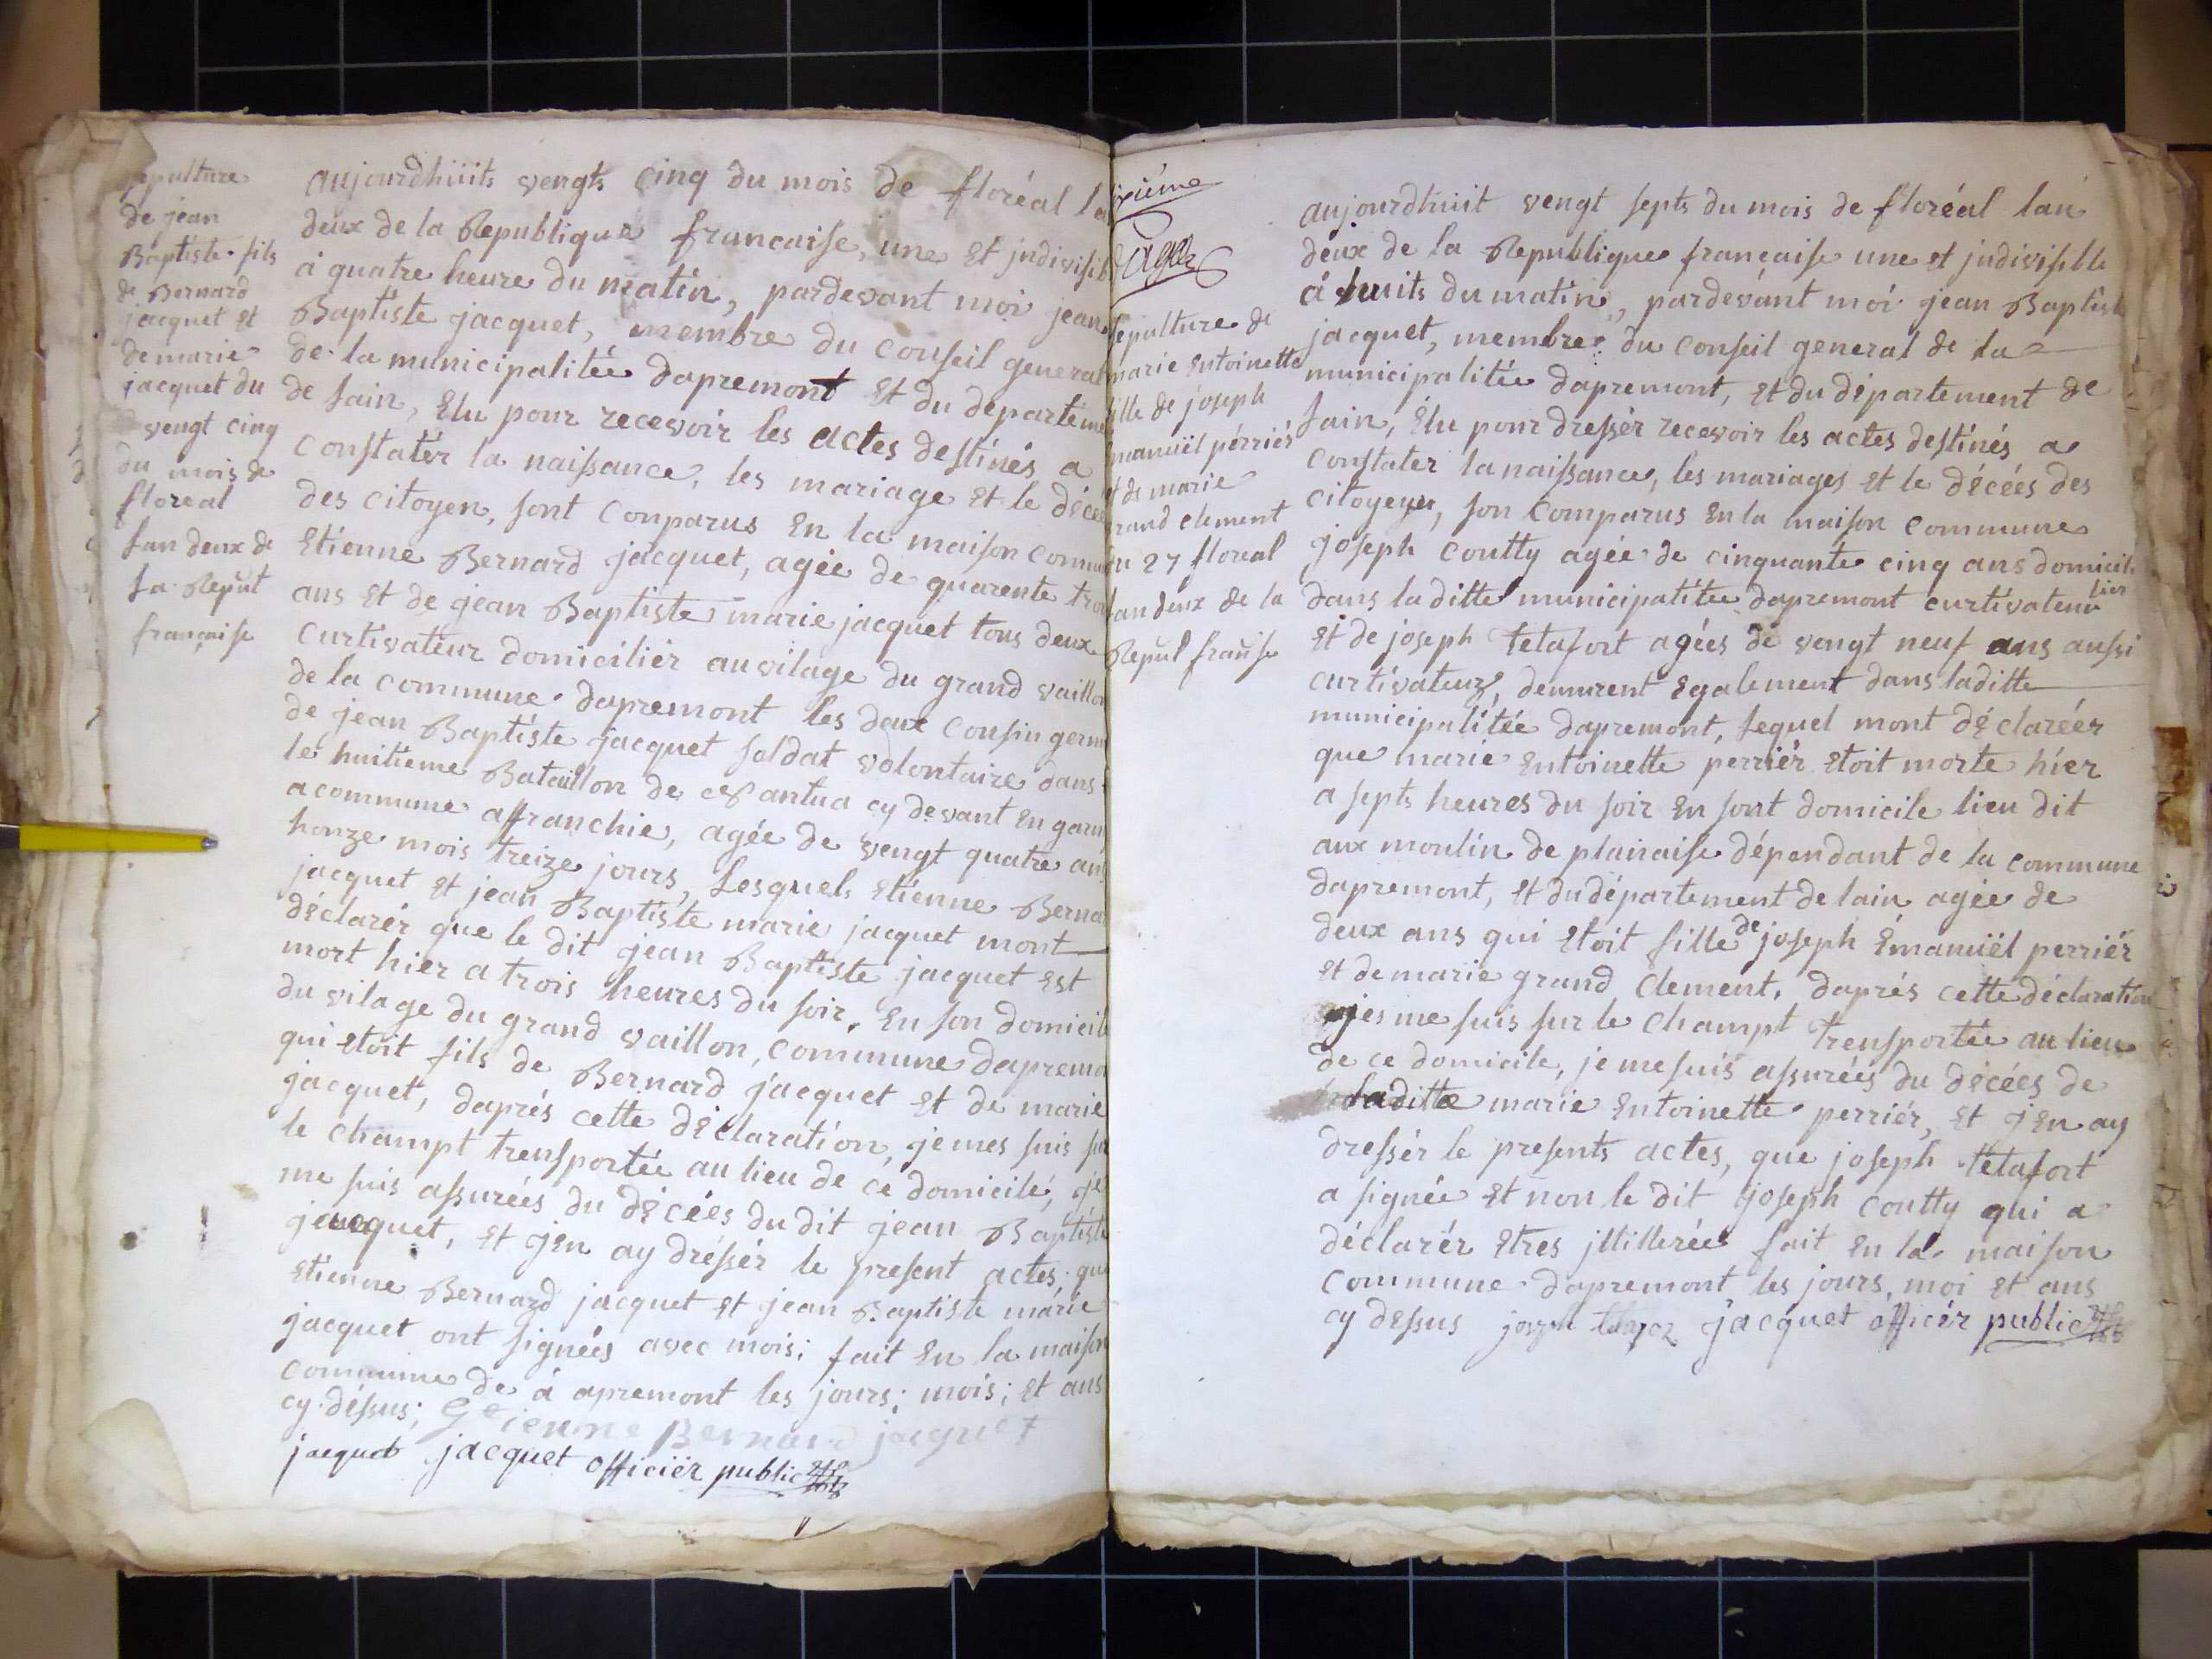 sepulture
de jean
Baptiste fils
de Bernard
jacquet et
de marie
jacquet du
vengt cinq
du mois de
floreal
lan deux de
la Repub
française
aujourdhuits vengts cinq du mois de floréal la
deux de la Republique francaise, une et jndivisib
à quatre heure du matin, pardevant moi jean
Baptiste jacquet, membre du conseil general
de la municipalitée dapremont et du departeme
de lain, Elu pour recevoir les actes destinés a
constatér la naissance, les mariage et le décé
des citoyen, sont conparus En la maison commu
Etienne Bernard jacquet, agée de quarente troi
ans et de jean Baptiste marie jacquet tous deux
curtivateur domiciliér au vilage du grand vaillon
de la commune dapremont les deux cousin germ
de jean Baptiste jacquet soldat volontaire dans
le huitieme Bataillon de Nantua cy devant En garn
a commune affranchie, agée de vengt quatre an
honze mois treize jours, Lesquels Etienne Berna
jacquet et jean Baptiste marie jacquet mont
déclarér que le dit jean Baptiste jacquet est
mort hier a trois heures du soir. En son domicil
du vilage du grand vaillon, commune dapremo
qui etoit fils de Bernard jacquet et de marie
jacquet, daprés cette déclaration, jemes suis sur
le champt trensportée au lieu de ce domicile, je
me suis assurées du décées du dit jean Baptiste
jacquet, et jen ay dréssér le present actes que
Etienne Bernard jacquet et jean Baptiste marie
jacquet ont signées avec mois; fait En la maison
commune de à apremont les jours; mois; et ans
cy déssus; Etienne Bernard jacquet
jacquet jacquet officiër public
ixiéme
page
sepulture de
marie Entoinette
fille de joseph
manuël pérriés
et de marie
grand clement
du 27 floreal
lan deux de la
Repul franise
aujourdhuit vengt septs du mois de floréal lan
deux de la Republique française une et jndivisible
à huits du matin, pardevant moi jean Baptist
jacquet, membre du conseil general de la
municipalitée dapremont, et du département de
lain, Élu pour dressér recevoir les actes destinés a
constater la naissance, les mariages et le décées des
citoyens, son Comparus En la maison commune
joseph coutty agée de cinquante cinq ans domicil
lier
dans laditte municipalitée dapremont curtivateur
et de joseph tetafort agées de vengt neuf ans aussi
curtivateur, demurent Egalement dans laditte
municipalitée dapremont, lequel mont déclaréér
que marie Entoinette perriér etoit morte hiér
a septs heures du soir En sont domicile lieu dit
aux moulin de plainaise dépendant de la commune
dapremont, et du département de lain agée de
deux ans qui etoit fille de joseph Émanuël perriér
et de marie grand clement. daprés cette déclaration
jes me suis sur le champt trensportée au lieu
de ce domicile, je me suis assurées du décées de
laditte marie Entoinette perriér, et jEn ay
dressér le presents actes, que joseph tétafort
a signée et non le dit joseph coutty qui a
déclarér etres jllitterées fait En la maison
commune dapremont les jours, moi et ans
cy dessus joseph jacquet officér public